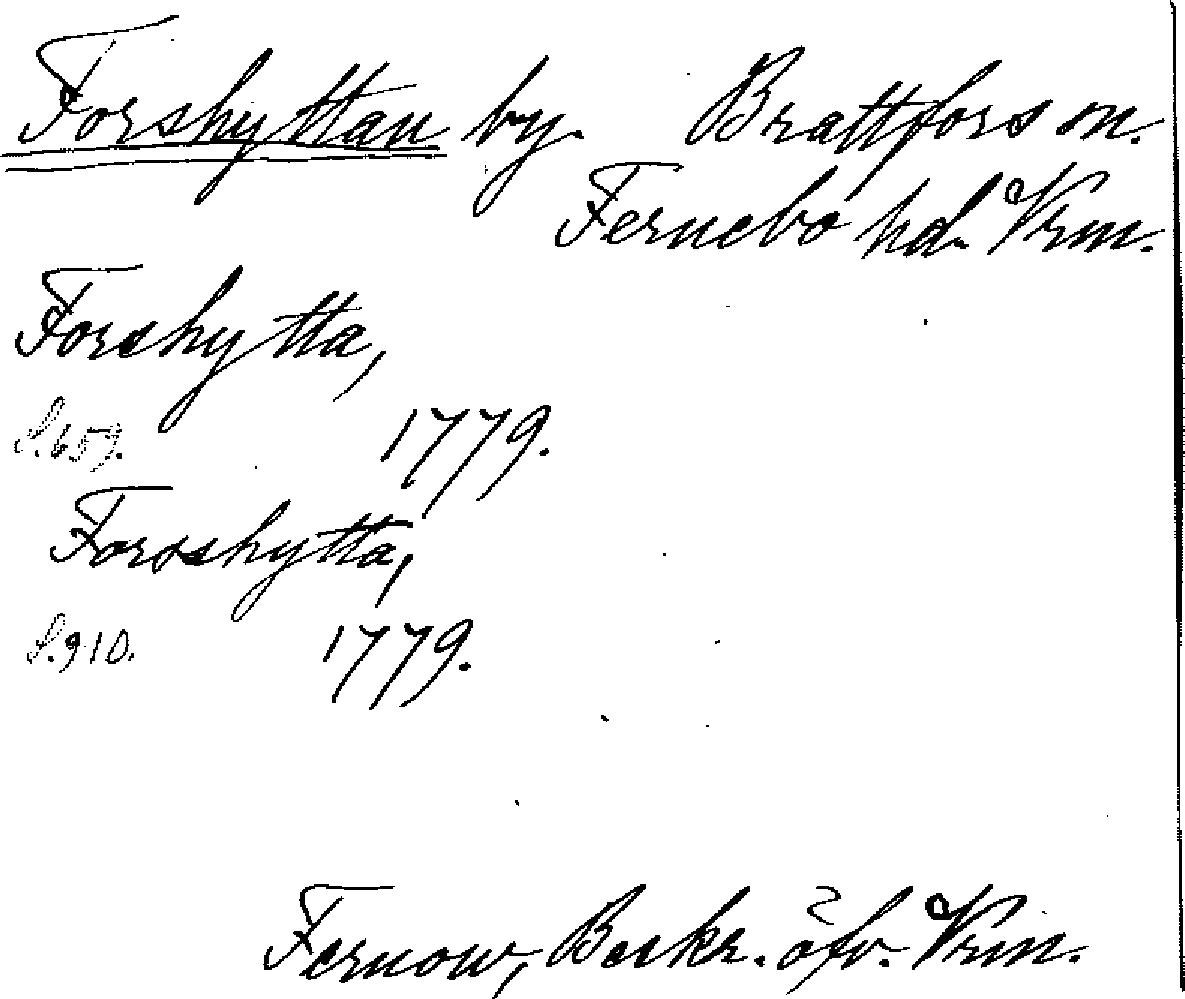 Forshyttan by. Brattfors sn.
Fernebo hd. Vrm.
Forshytta,
S. 659. 1779.
Forsshytta,
S. 910. 1779.
Fernow, Beskr. öfv. Vrm.